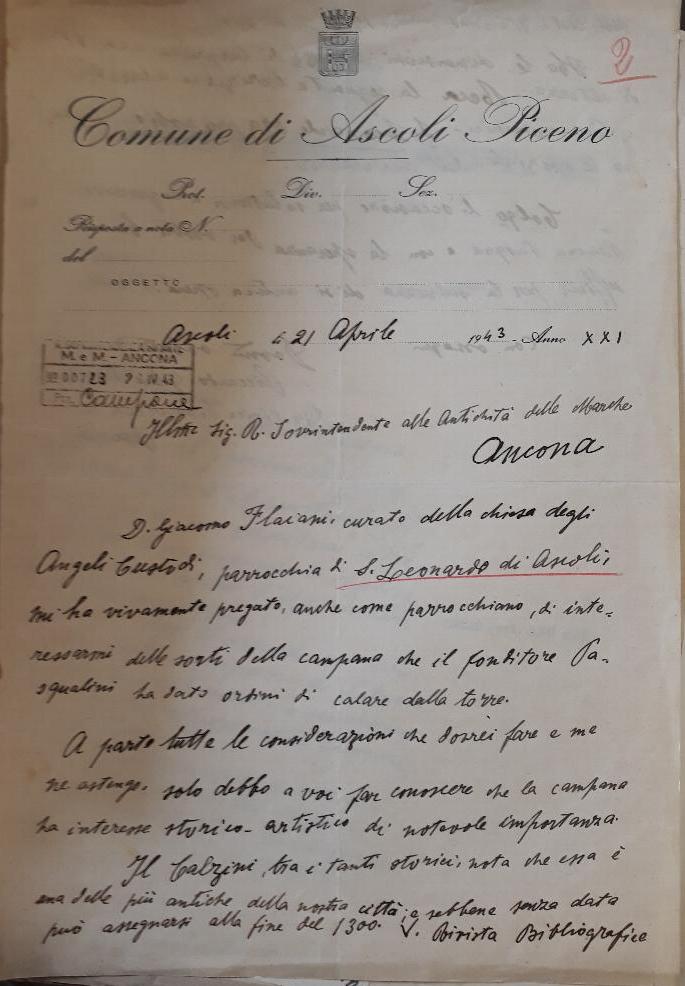 2
Comune di Ascoli Piceno
Prot. Div. Sez.
Risposta a nota N.
del
OGGETTO
Ascoli li 21 Aprile 1943 - Anno XXI
M. e M. - ANCONA
No 00723 IV. 43
Campane
Ill.mo Sig. R. Sovrintendente alle Antichità delle Marche
Ancona
D. Giacomo Flaiani, curato della chiesa degli
Angeli Custodi, parrocchia di S. Leonardo di Ascoli,
mi ha vivamente pregato, anche come parrocchiano, di inte-
ressarmi delle sorti della campana che il fonditore Pa-
squalini ha dato ordini di calare dalla torre.
A parte tutte le considerazioni che dovrei fare e me
ne astengo, solo debbo a voi far conoscere che la campana
ha interesse storico-artistico di notevole importanza.
Il Calzini, tra i tanti storici, nota che essa è
una delle più antiche della nostra città; e sebbene senza data
può assegnarsi alla fine del 1300. V. Rivista Bibliografica